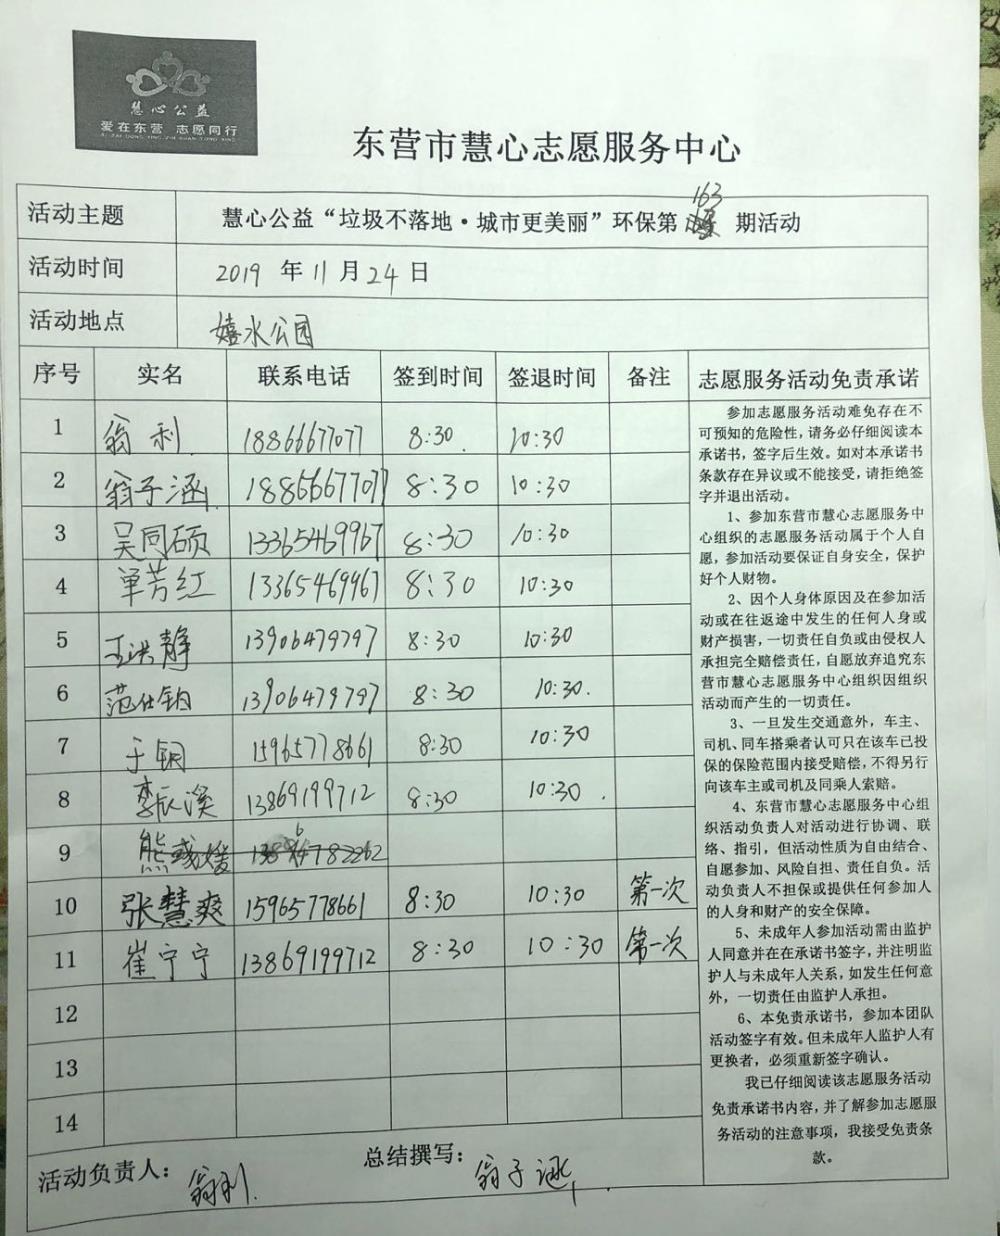 慧心公益
爱在东营 志愿同行
东营市慧心志愿服务中心
活动主题 慧心公益“垃圾不落地·城市更美丽”环保第 163 期活动
活动时间 2019 年 11 月 24 日
活动地点 嬉水公园
序号 实名 联系电话 签到时间 签退时间 备注 志愿服务活动免责承诺
1 翁利 18866677077 8:30 10:30
2 翁子涵 18866677077 8:30 10:30
3 吴同硕 13365469967 8:30 10:30
4 单芳红 13365469967 8:30 10:30
5 王洪静 13906479797 8:30 10:30
6 范仕钧 13906479797 8:30 10:30.
7 于钢 15965778661 8:30 10:30
8 李辰溪 13869199712 8:30 10:30.
9 熊
10 张慧爽 15965778661 8:30 10:30 第一次
11 崔宁宁 13869199712 8:30 10:30 第一次
12
13
14
参加志愿服务活动难免存在不
可预知的危险性，请务必仔细阅读本
承诺书，签字后生效。如对本承诺书
条款存在异议或不能接受，请拒绝签
字并退出活动。
1、参加东营市慧心志愿服务中
心组织的志愿服务活动属于个人自
愿，参加活动要保证自身安全，保护
好个人财物。
2、因个人身体原因及在参加活
动或在往返途中发生的任何人身或
财产损害，一切责任自负或由侵权人
承担完全赔偿责任，自愿放弃追究东
营市慧心志愿服务中心组织因组织
活动而产生的一切责任。
3、一旦发生交通意外，车主、
司机、同车搭乘者认可只在该车已投
保的保险范围内接受赔偿，不得另行
向该车主或司机及同乘人索赔。
4、东营市慧心志愿服务中心组
织活动负责人对活动进行协调、联
络、指引，但活动性质为自由结合、
自愿参加、风险自担、责任自负。活
动负责人不担保或提供任何参加人
的人身和财产的安全保障。
5、未成年人参加活动需由监护
人同意并在在承诺书签字，并注明监
护人与未成年人关系，如发生任何意
外，一切责任由监护人承担。
6、本免责承诺书，参加本团队
活动签字有效。但未成年人监护人有
更换者，必须重新签字确认。
我已仔细阅读该志愿服务活动
免责承诺书内容，并了解参加志愿服
务活动的注意事项，我接受免责条
款。
活动负责人：翁利. 总结撰写：翁子涵